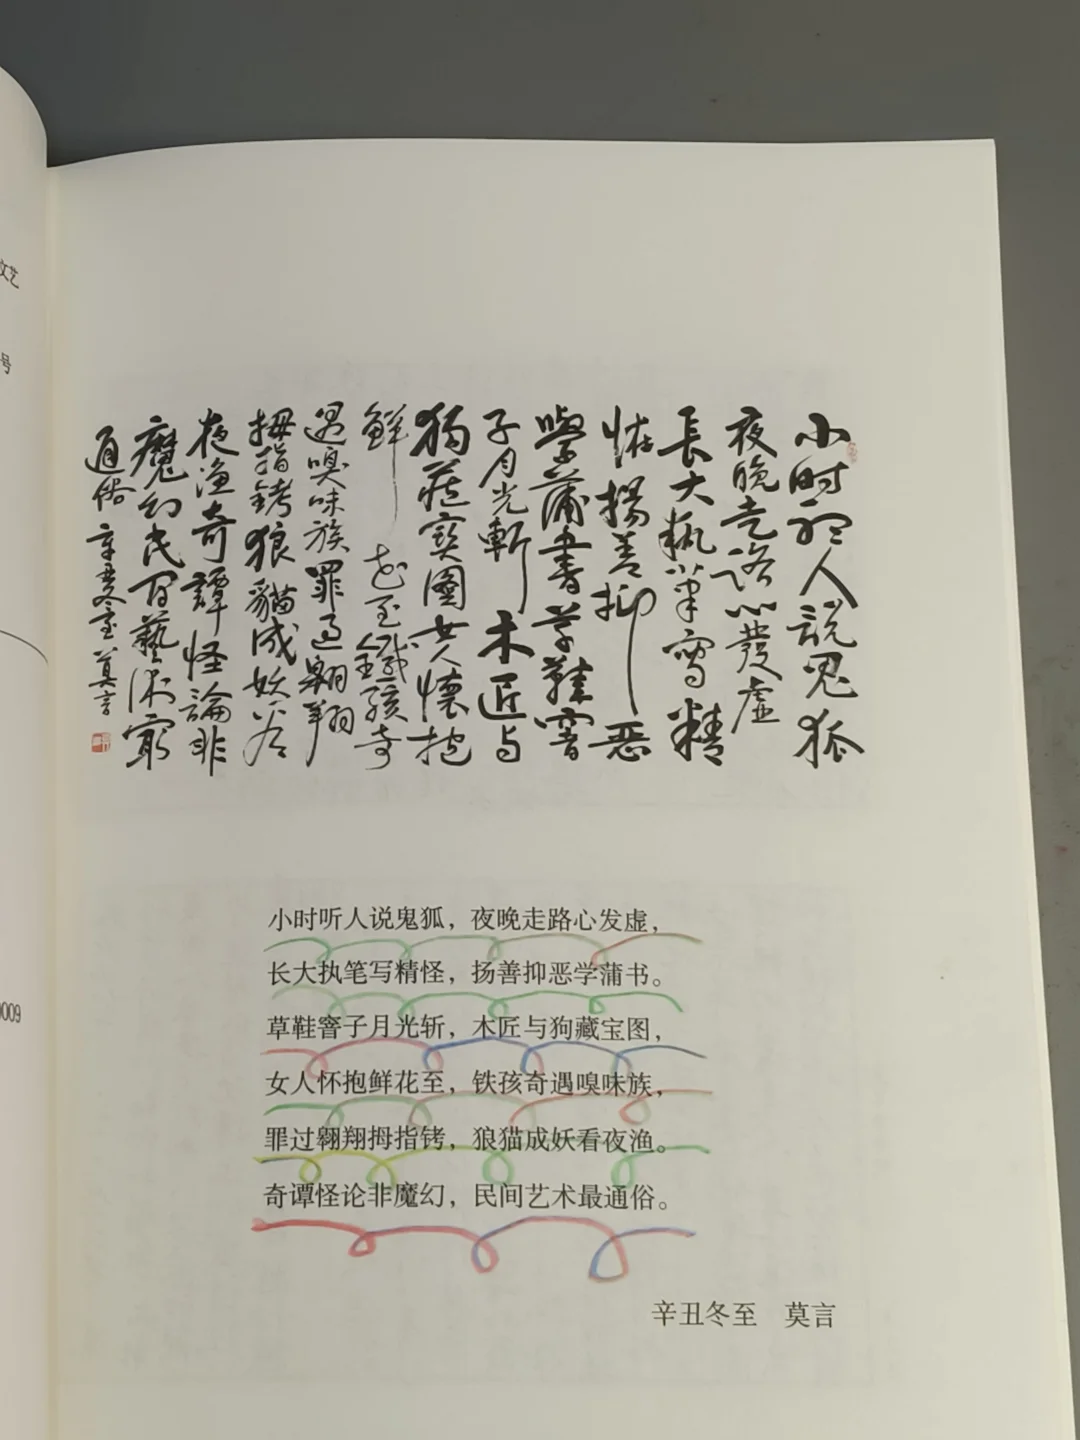 文艺
号
0009
小时聽人説鬼狐
夜晚走路心發虚
長大執筆寫精
怪揚善抑惡
學蒲書草鞋窨
子月光斬木匠与
狗藏寳圖女人懷抱
鮮花至鐵孩奇
遇嗅味族罪过翱翔
拇指銬狼貓成妖看
夜渔奇譚怪論非
魔幻民间藝術最
通俗 辛丑冬至 莫言
小时听人说鬼狐，夜晚走路心发虚，
长大执笔写精怪，扬善抑恶学蒲书。
草鞋窨子月光斩，木匠与狗藏宝图，
女人怀抱鲜花至，铁孩奇遇嗅味族，
罪过翱翔拇指铐，狼猫成妖看夜渔。
奇谭怪论非魔幻，民间艺术最通俗。
辛丑冬至 莫言